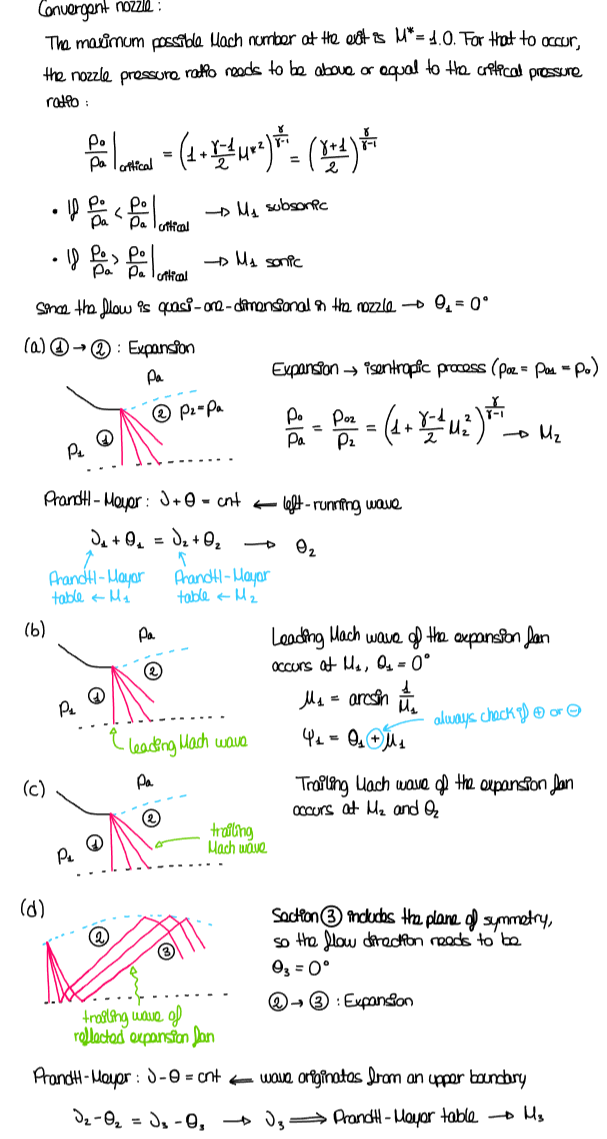 Convergent nozzle:
The maximum possible Mach number at the exit is M* = 1.0. For that to occur,
the nozzle pressure ratio needs to be above or equal to the critical pressure
ratio:
p₀/pₐ|critical = (1 + (γ-1)/2 M*²)^(γ/(γ-1)) = ((γ+1)/2)^(γ/(γ-1))
• If p₀/pₐ < p₀/pₐ|critical → M₁ subsonic
• If p₀/pₐ > p₀/pₐ|critical → M₁ sonic
Since the flow is quasi-one-dimensional in the nozzle → θ₁ = 0°
(a) ① → ② : Expansion
pₐ
② p₂ = pₐ
①
p₁
Expansion → isentropic process (p₀₂ = p₀₁ = p₀)
p₀/pₐ = p₀₂/p₂ = (1 + (γ-1)/2 M₂²)^(γ/(γ-1)) → M₂
Prandtl-Meyer: ν + θ = cnt ← left-running wave
ν₁ + θ₁ = ν₂ + θ₂ → θ₂
Prandtl-Meyer
table ← M₁
Prandtl-Meyer
table ← M₂
(b)
pₐ
②
①
p₁
leading Mach wave
Leading Mach wave of the expansion fan
occurs at M₁, θ₁ = 0°
μ₁ = arcsin 1/M₁
always check if ⊕ or ⊖
φ₁ = θ₁ + μ₁
(c)
pₐ
②
①
p₁
trailing
Mach wave
Trailing Mach wave of the expansion fan
occurs at M₂ and θ₂
(d)
②
③
trailing wave of
reflected expansion fan
Section ③ includes the plane of symmetry,
so the flow direction needs to be
θ₃ = 0°
② → ③ : Expansion
Prandtl-Meyer: ν - θ = cnt ← wave originates from an upper boundary
ν₂ - θ₂ = ν₃ - θ₃ → ν₃ ⟹ Prandtl-Meyer table → M₃